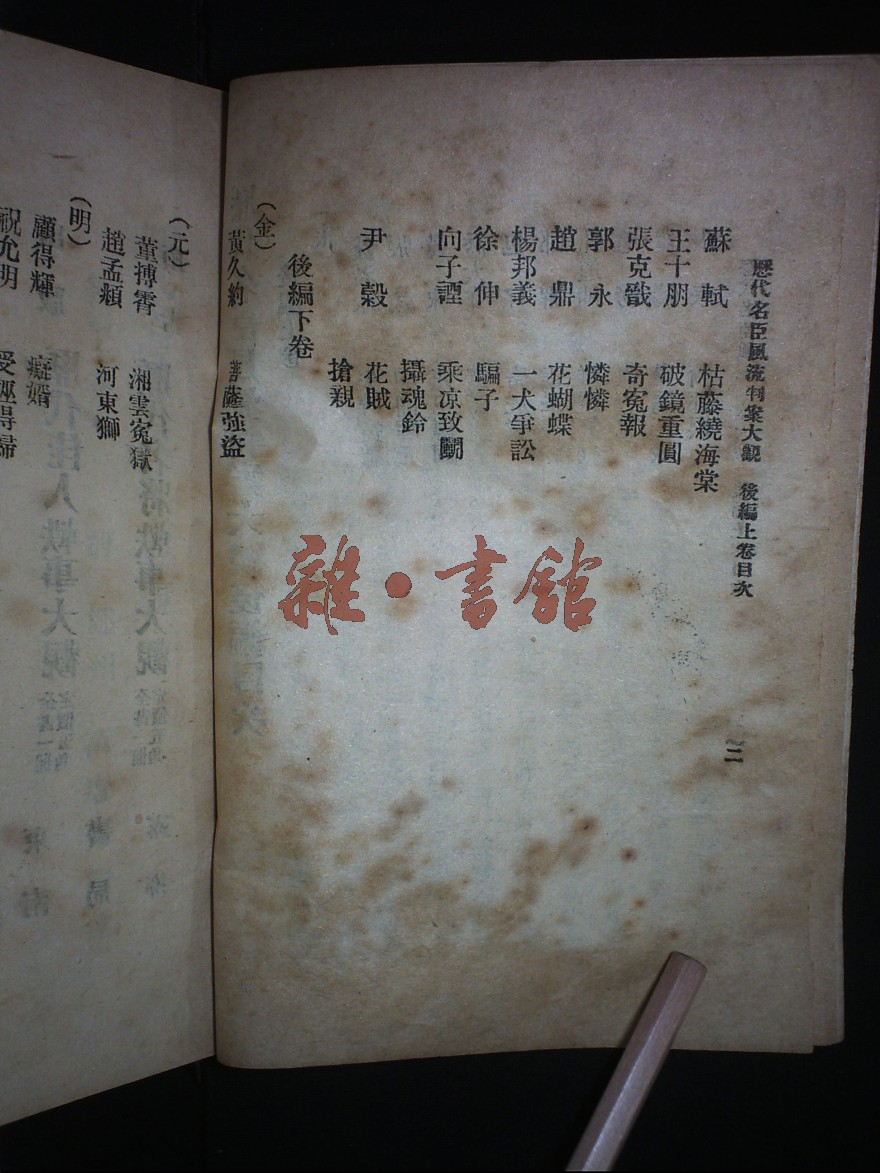 歷代名臣風流判案大觀 後編上卷目次 二
蘇軾 枯藤繞海棠
王十朋 破鏡重圓
張克戩 奇冤報
郭永 憐憐
趙鼎 花蝴蝶
楊邦義 一犬爭訟
徐伸 騙子
向子諲 乘凉致鬭
攝魂鈴
尹穀 花賊
搶親
後編下卷
(金)
黃久約 菩薩強盜
(元)
董搏霄 湘雲冤獄
趙孟頫 河東獅
(明)
顧得輝 癡婿
祝允明 受誣得歸
雜·書館